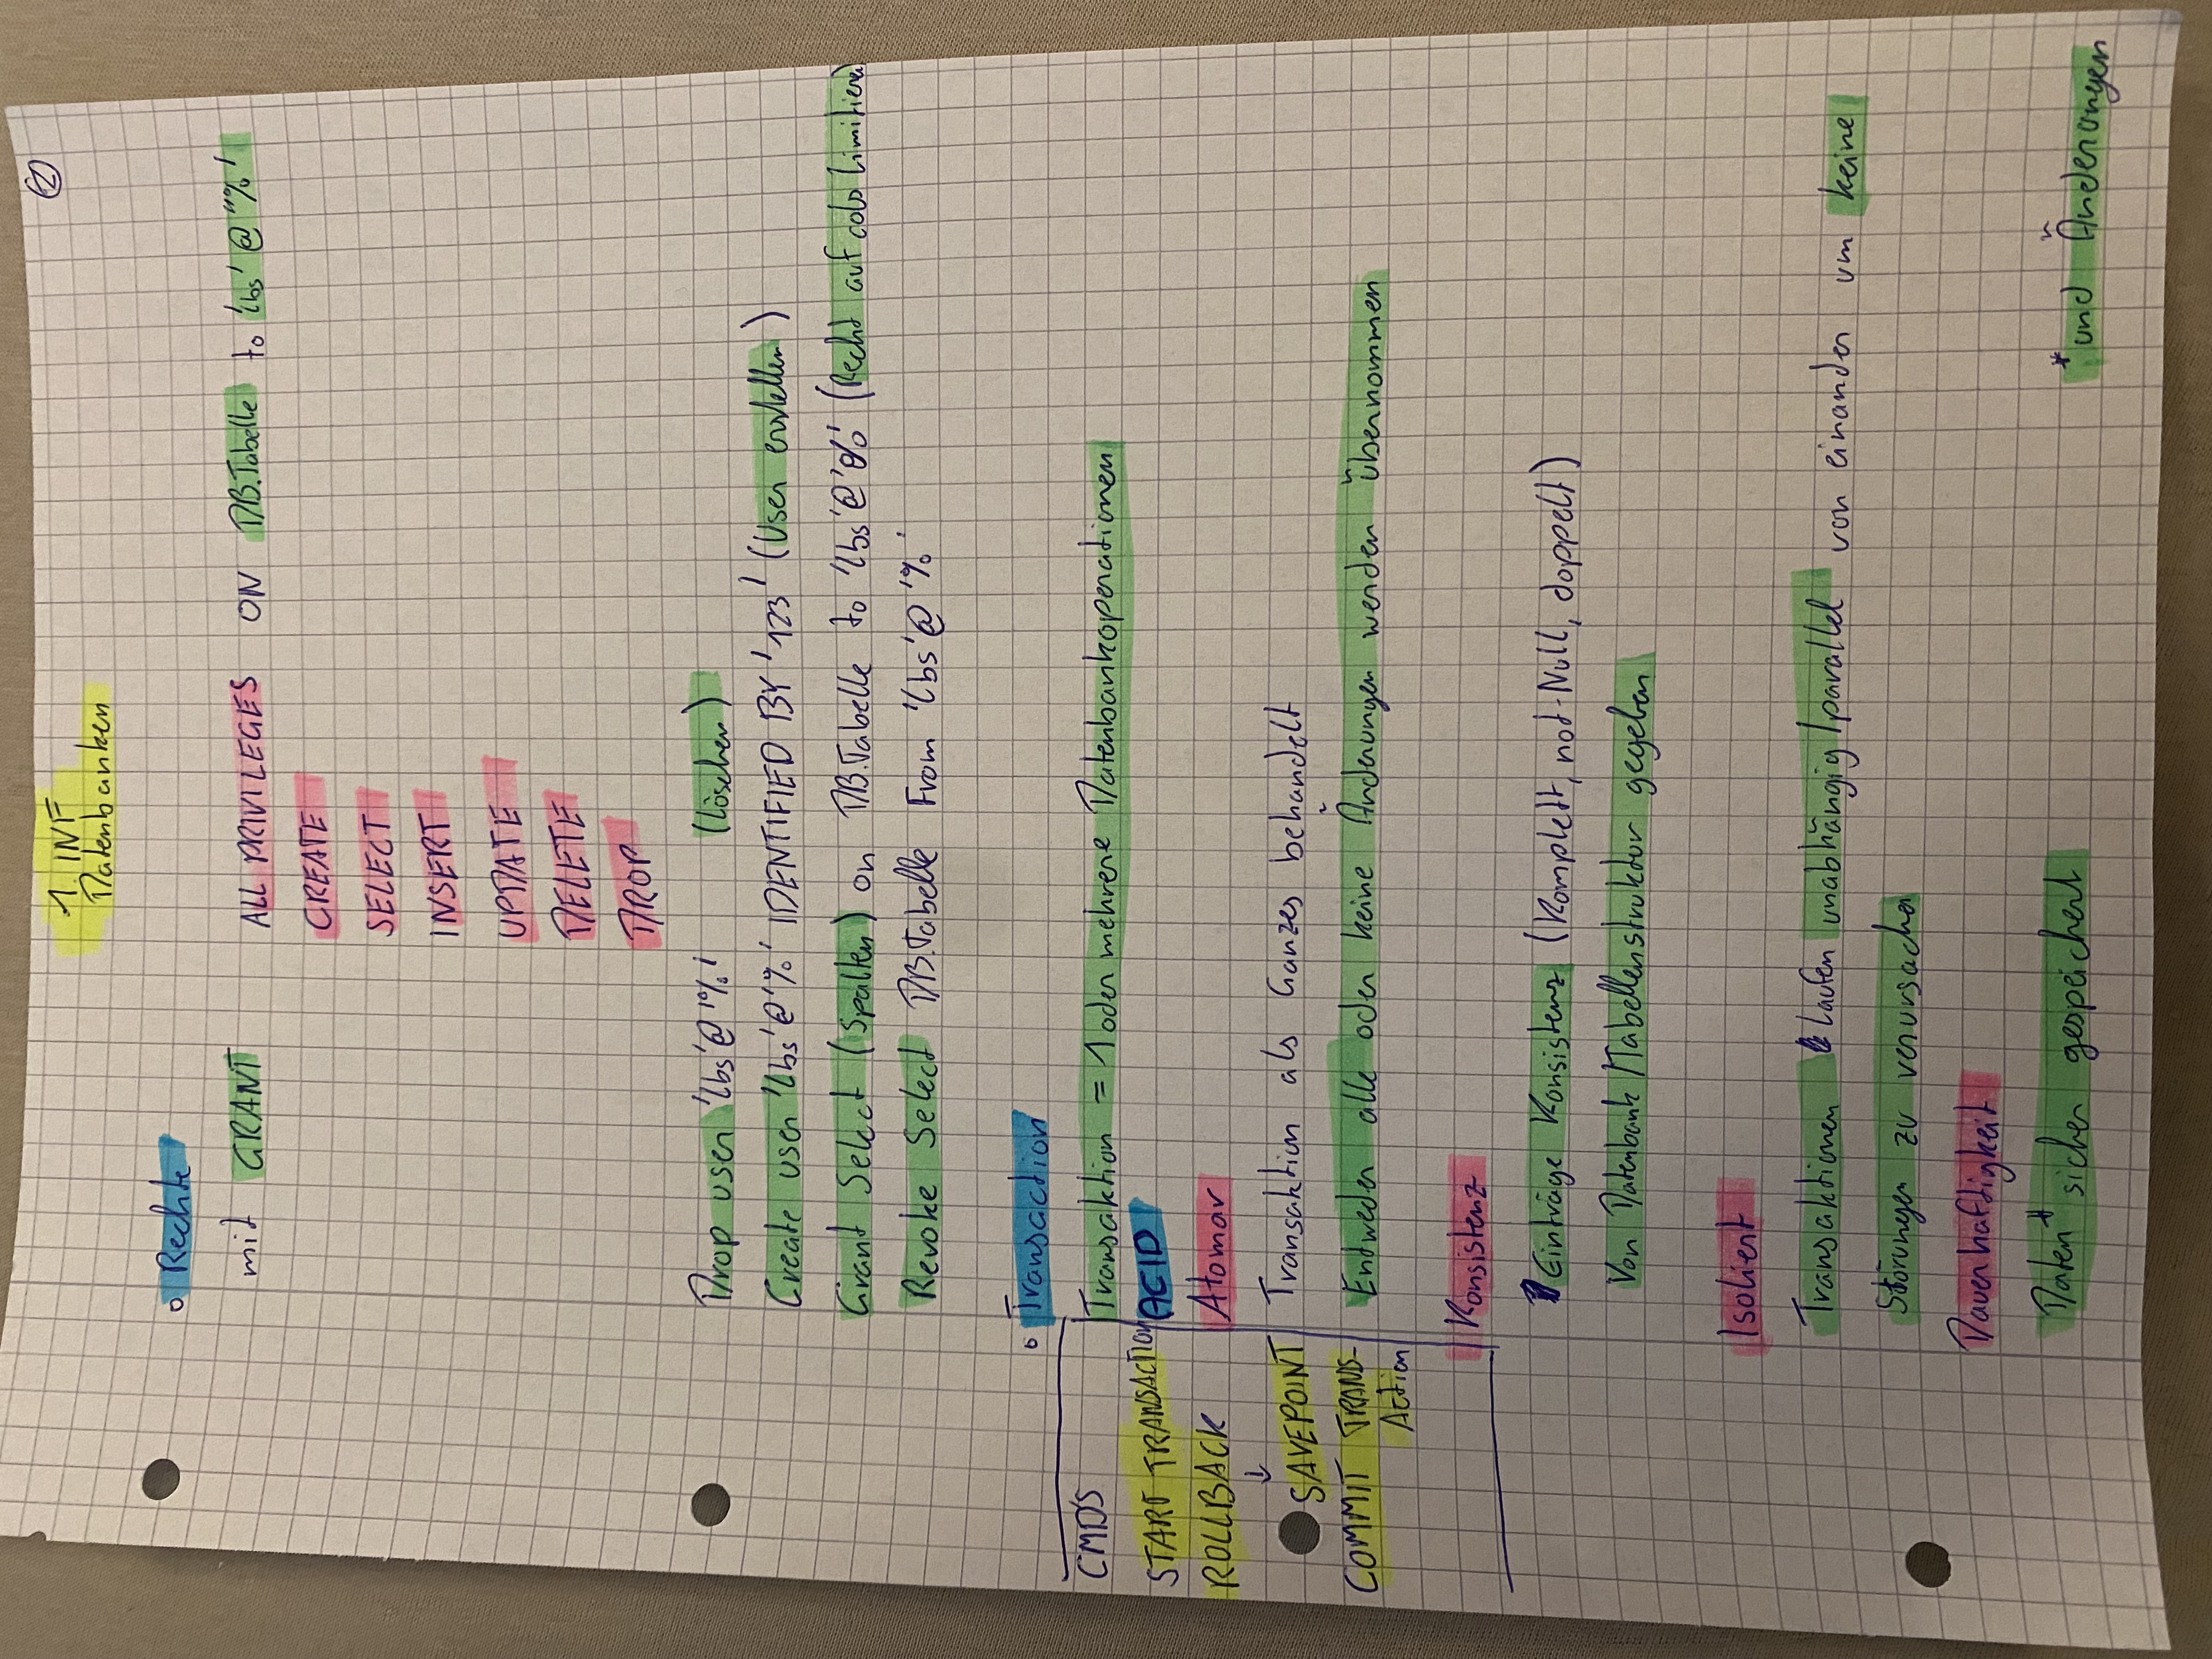 ②
1. INF
Datenbanken
o Rechte
mit GRANT ALL PRIVILEGES ON DB.Tabelle to 'lbs'@"%'
CREATE
SELECT
INSERT
UPDATE
DELETE
DROP
Drop user 'lbs'@'%' (löschen)
Create user 'lbs'@'%' IDENTIFIED BY '123' (User erstellen)
Grant Select (Spalten) on DB.Tabelle to 'lbs'@'%' (Recht auf cols limitieren)
Revoke Select DB.Tabelle From 'lbs'@'%'
o Transaction
Transaktion = 1 oder mehrere Datenbankoperationen
ACID
Atomar
Transaktion als Ganzes behandelt
Entweder alle oder keine Änderungen werden übernommen
CMD'S
START TRANSACTION
ROLLBACK
↓
SAVEPOINT
COMMIT TRANS-
Action
Konsistenz
Einträge Konsistenz (Komplett, not-Null, doppelt)
Von Datenbank/Tabellenstruktur gegeben
Isoliert
Transaktionen laufen unabhängig/parallel von einander um keine
Störungen zu verursachen
Dauerhaftigkeit
Daten* sicher gespeichert
*und Änderungen